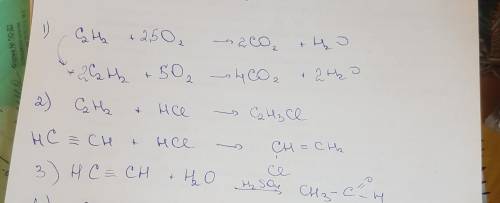 1) C₂H₂ + 2,5O₂ → 2CO₂ + H₂O
2C₂H₂ + 5O₂ → 4CO₂ + 2H₂O
2) C₂H₂ + HCl → C₂H₃Cl
HC ≡ CH + HCl → CH = CH₂
Cl
3) HC ≡ CH + H₂O H₂SO₄ → CH₃ - C O H